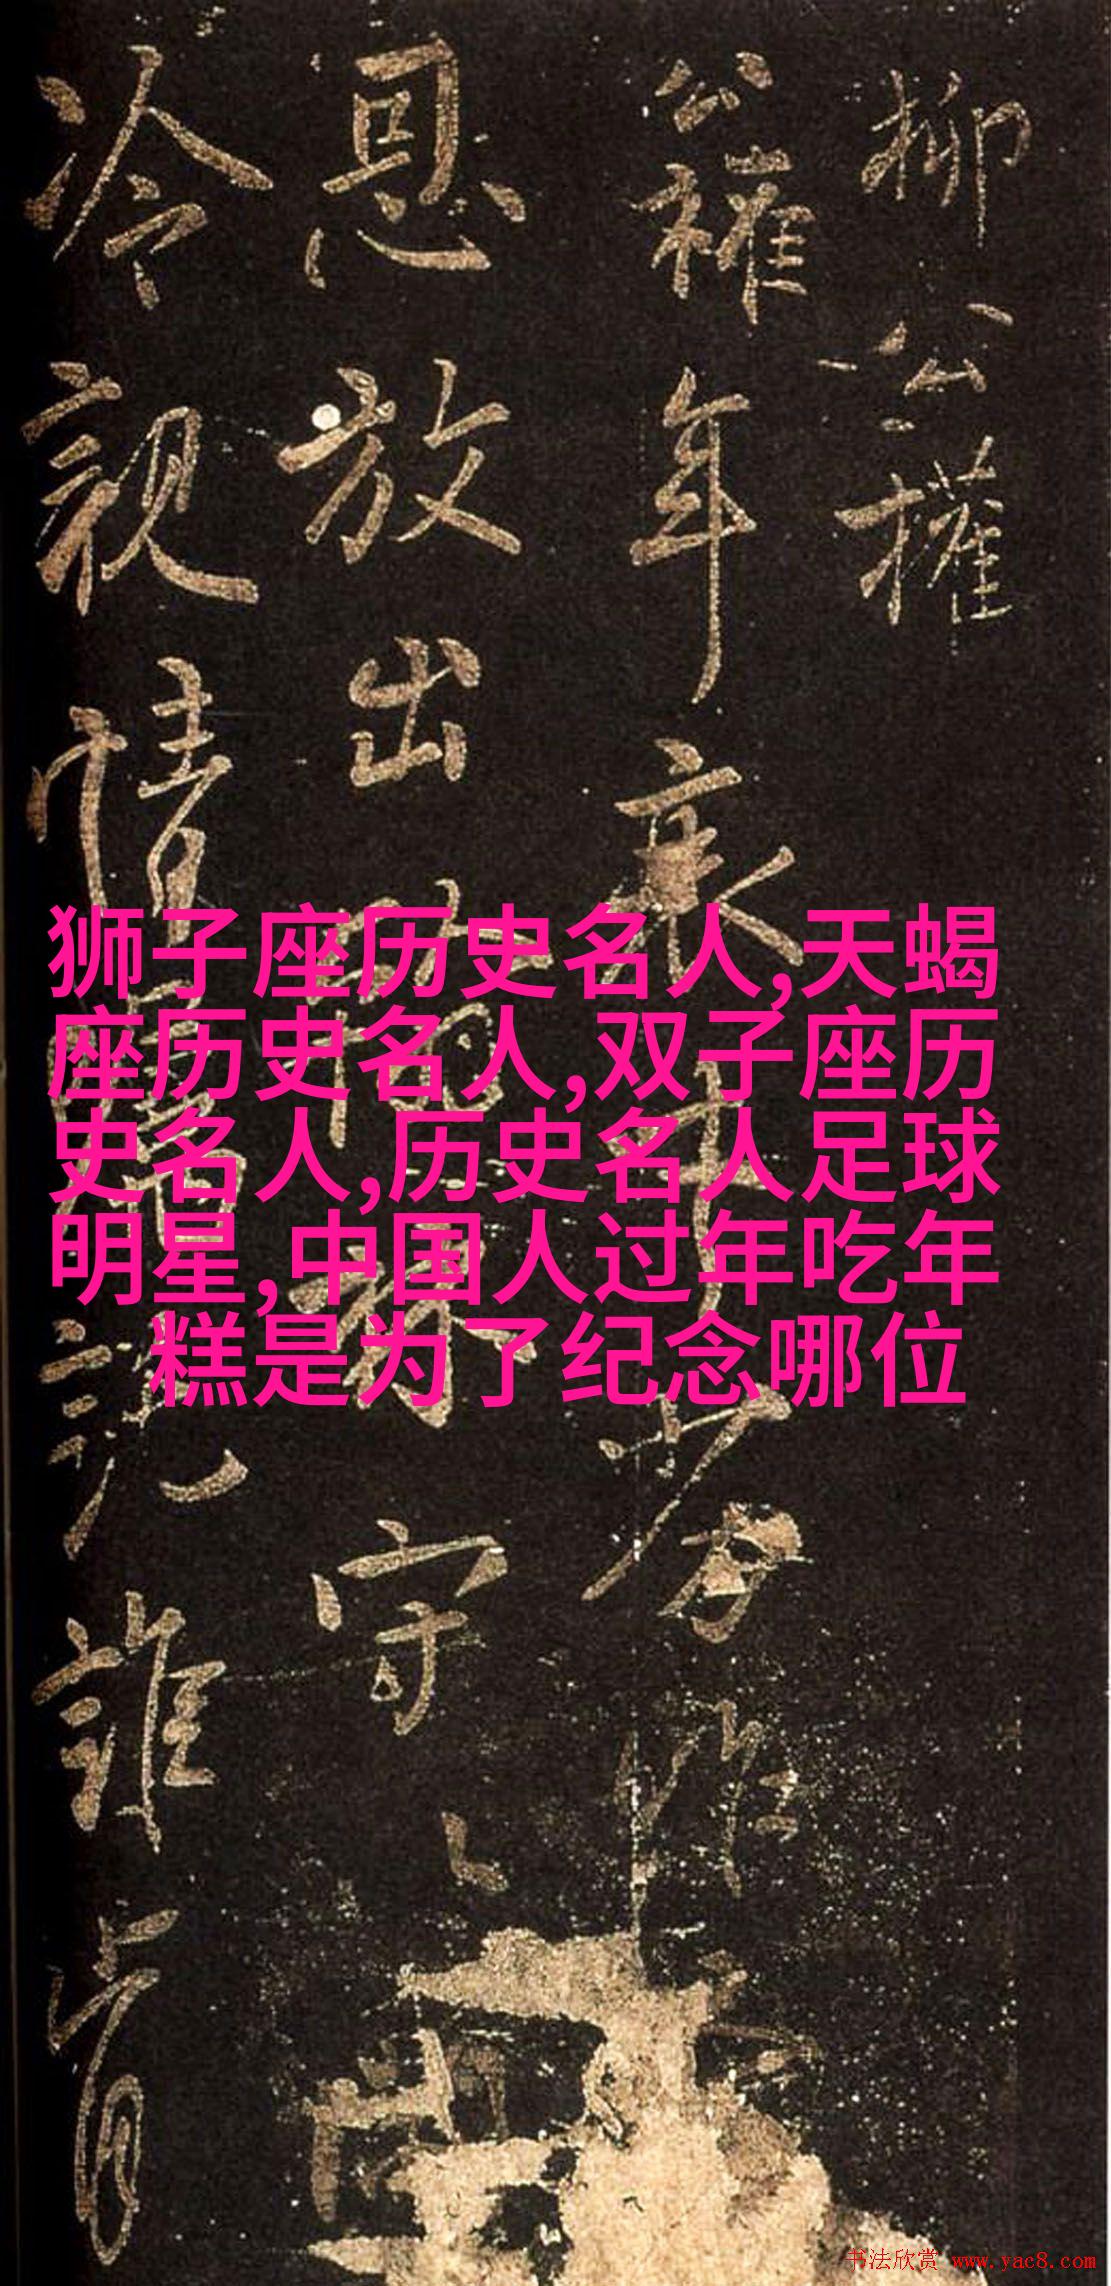 柳公權
公權年衰才劣昨
恩放出翰林守
冷親情囑託誰肯
狮子座历史名人,天蝎
座历史名人,双子座历
史名人,历史名人足球
明星,中国人过年吃年
糕是为了纪念哪位
书法欣赏 www.yac8.com